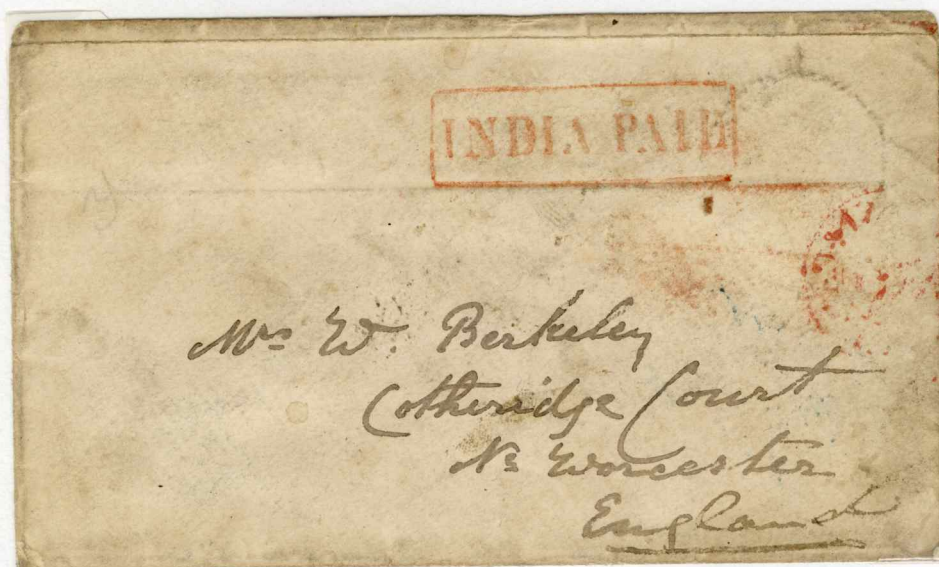 INDIA PAID
Mrs W. Berkeley
Cotheridge Court
Nr Worcester
England